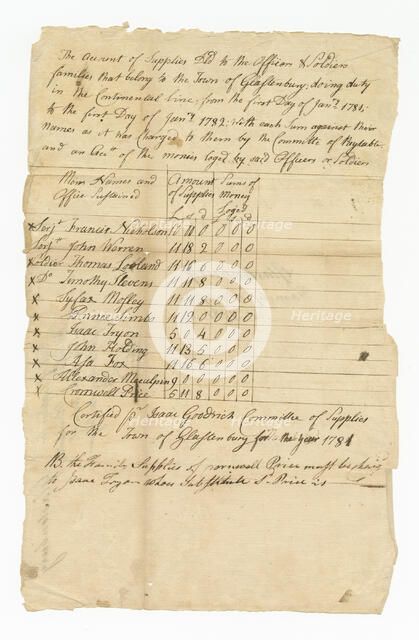 The Account of Supplies Dld to the Officers & Soldiers
families that belong to the Town of Glastenbury, doing duty
in the Continental Line, from the first Day of Janr 1781,
to the first Day of Janr 1782; with each Sum against their
Names as it was Charged to them by the Committee of Paytable
and an Acct of the monies loged by said Officers or Soldiers
Mens Names and Amount Sums of
Office Sustained of Supplies Money
Loged
x Serjt Francis Nicholson 11 11 0 0 0 0
x Serjt John Warren 11 18 2 0 0 0
x Thomas Loveland 11 16 6 0 0 0
x Do Timothy Stevens 11 11 8 0 0 0
x Mosley 11 11 8 0 0 0
x 11 12 0 0 0 0
x Isaac Tryon 5 0 4 0 0 0
x John 11 13 5 0 0 0
x Asa Fox 11 16 6 0 0 0
x Alexander 9 0 0 0 0 0
x Cromwell Price 5 11 8 0 0 0
Certified pr Isaac Goodrich Committee of Supplies
for the Town of Glastenbury for the year 1781
NB. the Family Supplies of Price must be
to Isaac Tryon whose Substitute Sd Price is
Heritage
Heritage
Heritage
Heritage